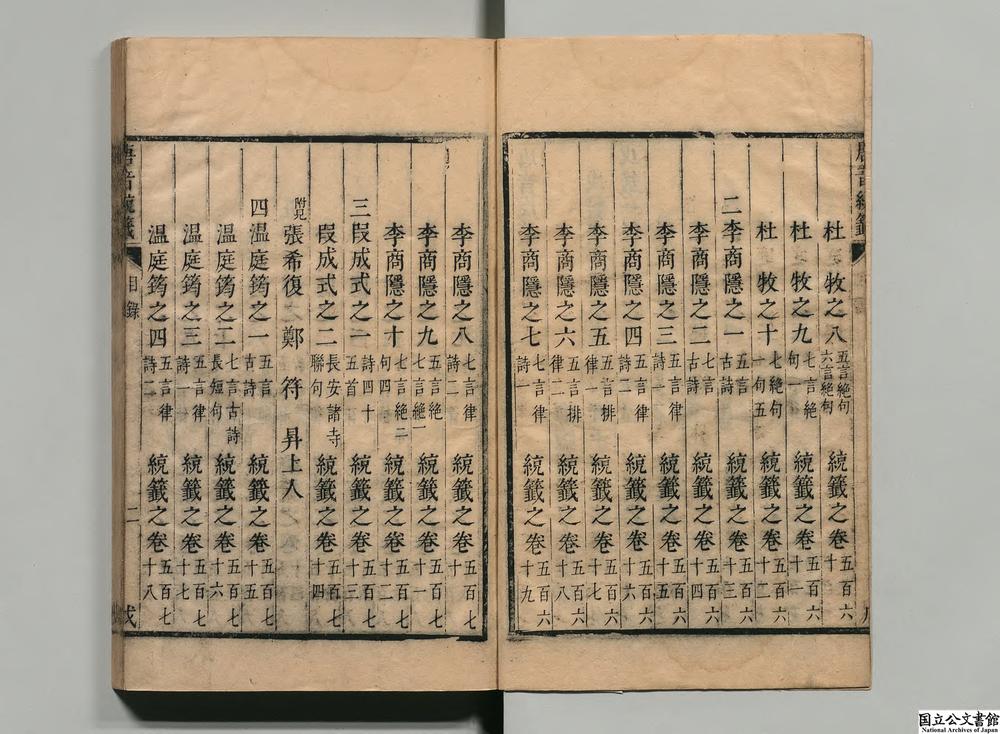 唐音統籤
杜牧之八 五言絶句六言絶句 統籤之卷五百六十
杜牧之九 七言絶句一 統籤之卷五百六十一
杜牧之十 七絶句一句五 統籤之卷五百六十二
二李商隱之一 五言古詩 統籤之卷五百六十三
李商隱之二 七言古詩 統籤之卷五百六十四
李商隱之三 五言律詩一 統籤之卷五百六十五
李商隱之四 五言律詩二 統籤之卷五百六十六
李商隱之五 五言排律一 統籤之卷五百六十七
李商隱之六 五言排律二 統籤之卷五百六十八
李商隱之七 七言律詩一 統籤之卷五百六十九
李商隱之八 七言律詩二 統籤之卷五百七十
李商隱之九 五言絶七言絶一 統籤之卷五百七十一
李商隱之十 七言絶二句四 統籤之卷五百七十二
三段成式之一 詩四十五首 統籤之卷五百七十三
段成式之二 長安諸寺聯句 統籤之卷五百七十四
附見張希復 鄭符 昇上人
四温庭筠之一 五言古詩 統籤之卷五百七十五
温庭筠之二 七言古詩長短句 統籤之卷五百七十六
温庭筠之三 五言律詩一 統籤之卷五百七十七
温庭筠之四 五言律詩二 統籤之卷五百七十八
唐音統籤 目錄 二 戊
国立公文書館
National Archives of Japan